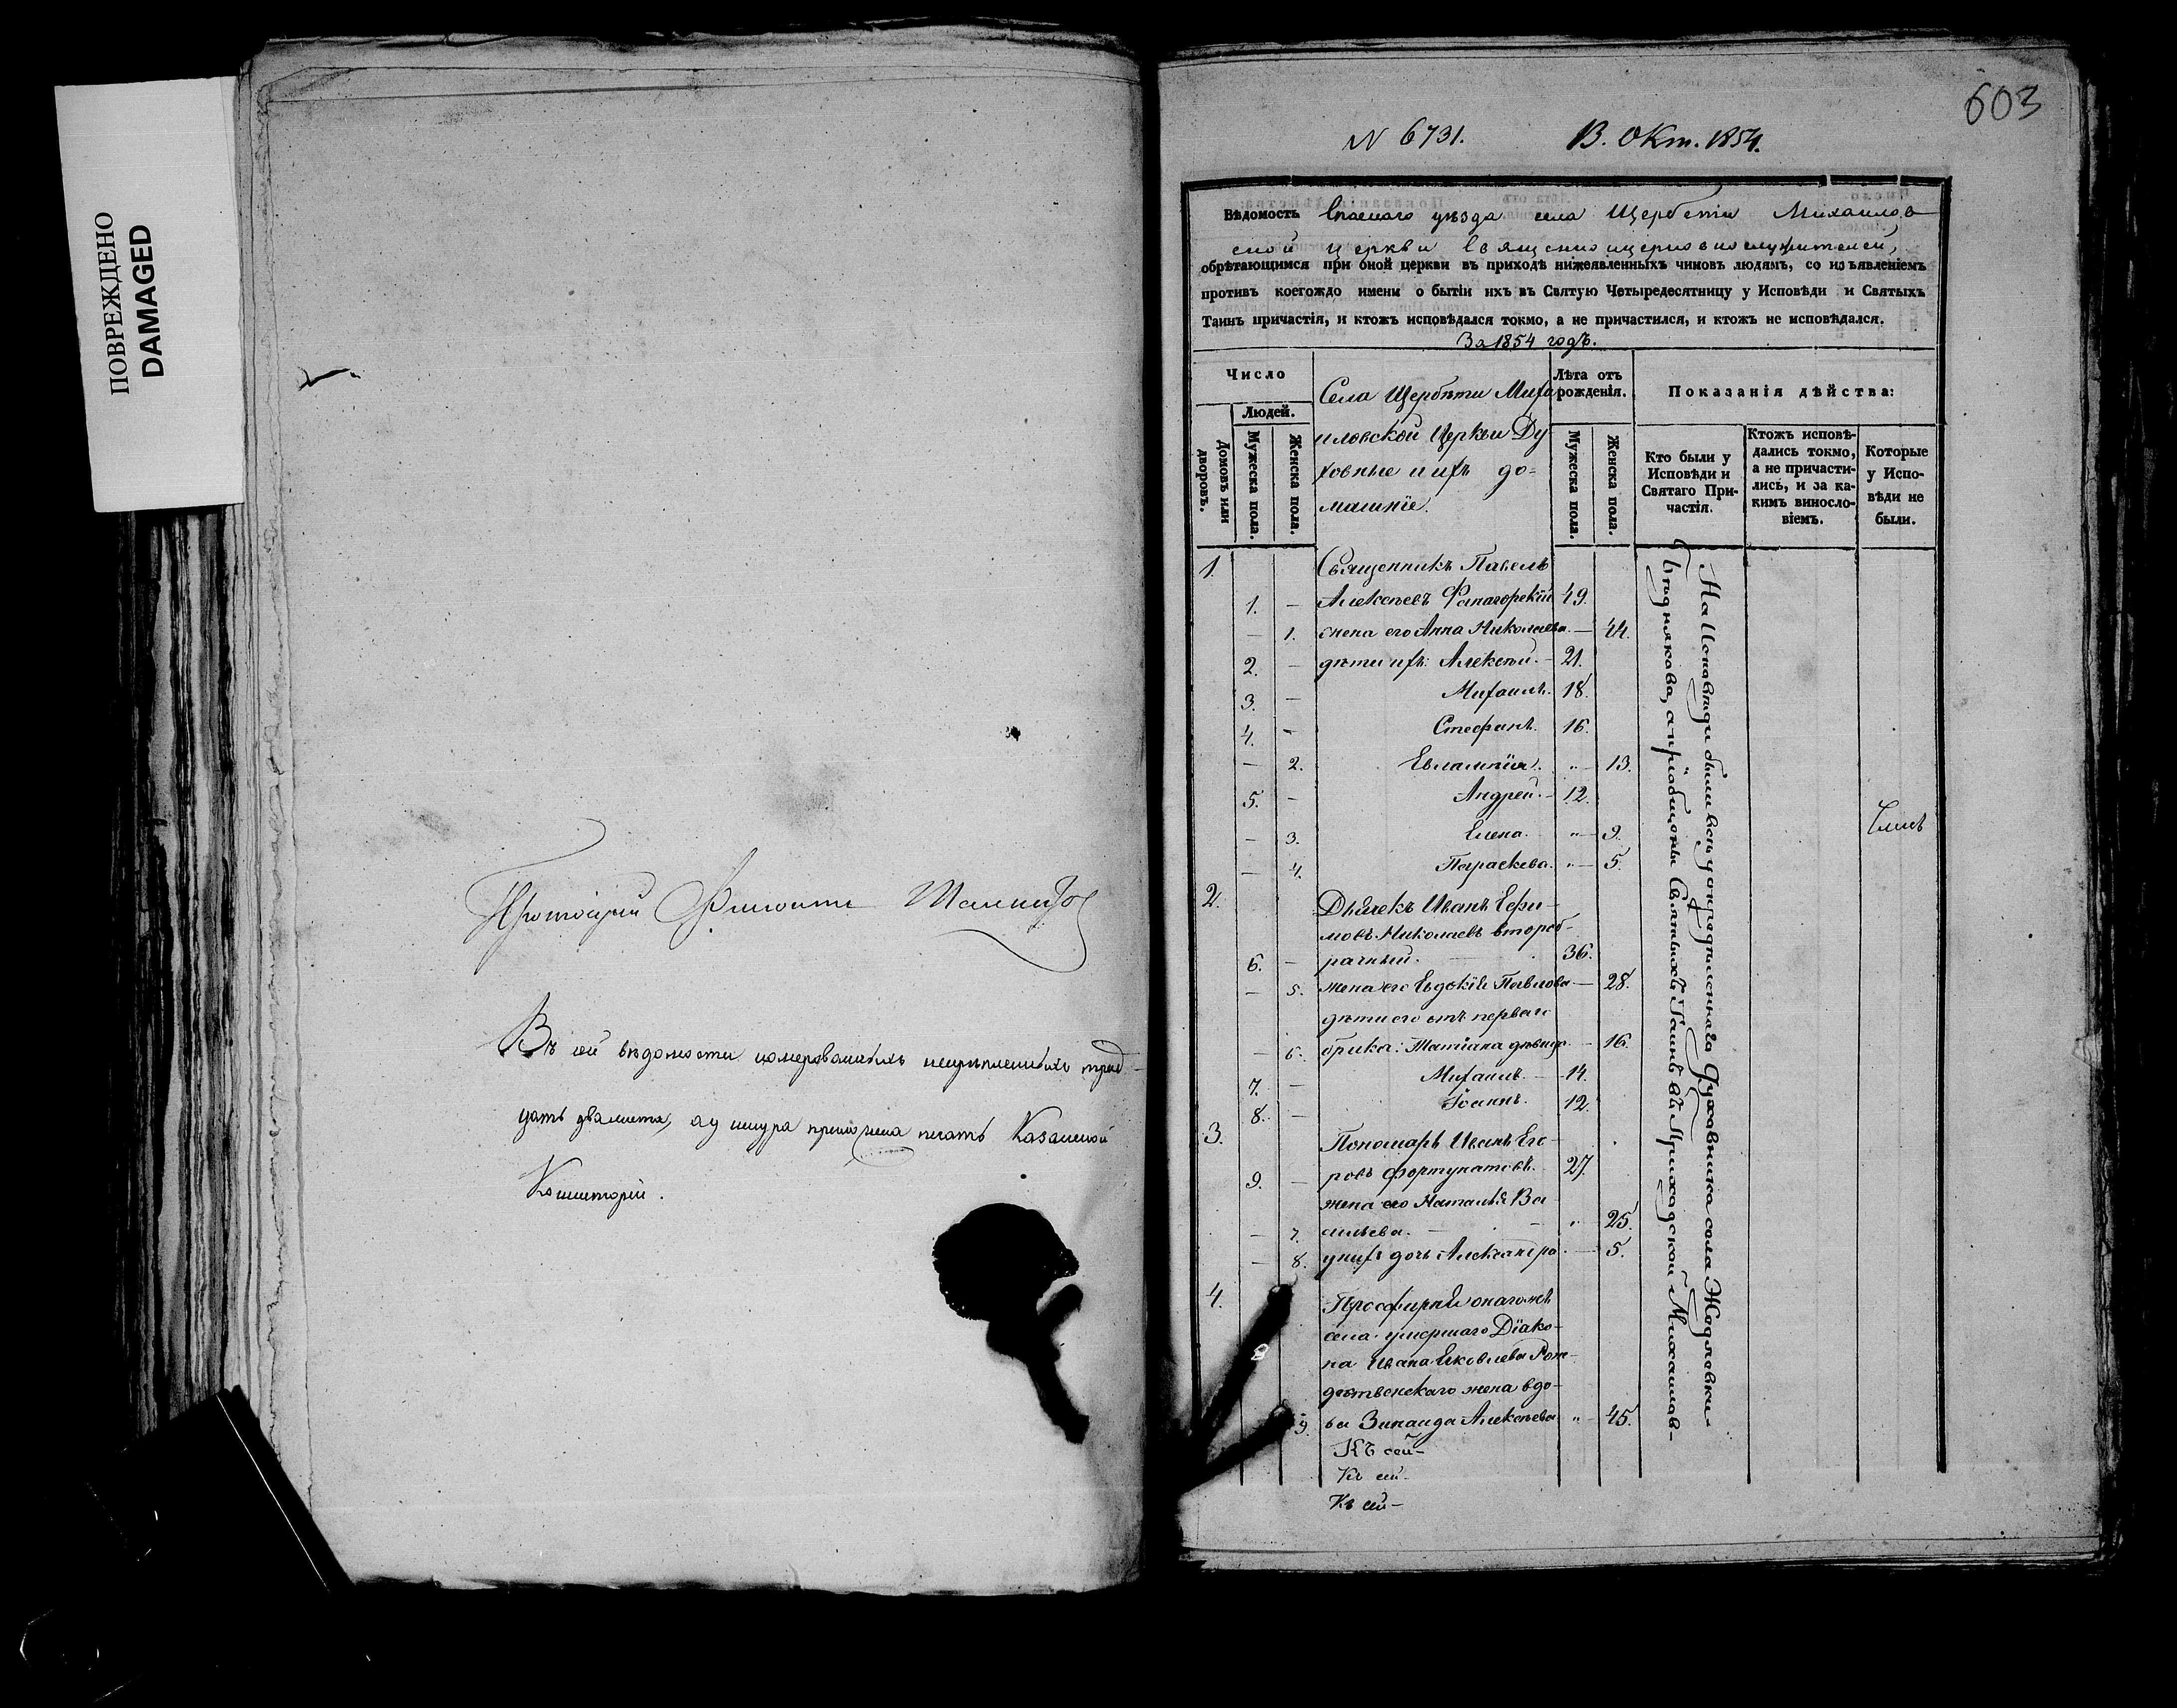 ПОВРЕЖДЕНО
DAMAGED
Протоіерей
Въ сей вѣдомости номерованныхъ трид-
цать два листа, а у шнура приложена печать Казанской
Консисторіи.
603
N 6731. 13. Окт. 1854.
Вѣдомость Спаскаго уѣзда села Щербети Михаилов
ской церкви Священноцерковнослужителей,
обрѣтающимся при оной церкви въ приходѣ нижеявленныхъ чиновъ людямъ, со изъявленіемъ
противъ коегождо имени о бытіи ихъ въ Святую Четыредесятницу у Исповѣди и Святыхъ
Таинъ причастія, и ктожъ исповѣдался токмо, а не причастился, и ктожъ не исповѣдался.
За 1854 годъ.
Число
Людей.
Домовъ или дворовъ.
Мужеска пола.
Женска пола.
Села Щербѣти Миха
иловской Церкви Ду
ховные и ихъ до=
машніе.
Лѣта отъ
рожденія.
Мужеска пола.
Женска пола.
Показанія дѣйства:
Кто были у
Исповѣди и
Святаго При-
частія.
Ктожъ исповѣ-
дались токмо,
а не причасти-
лись, и за ка-
кимъ винословіемъ.
Которые
у Испо-
вѣди не
были.
1. Священникъ Павелъ
1. – Алексѣевъ Фанагорскій 49.
– 1. жена его Анна Николаева – 44.
2. – дѣти ихъ: Алексѣй. – 21.
3. – Михаилъ. 18.
4. – Стефанъ. 16.
– 2. Евлампія. „ – 13.
5. – Андрей. – 12.
– 3. Елена. „ – 9.
– 4. Параскева. „ – 5.
2. Дьячекъ Иванъ Ефи–
мовъ Николаевъ второб–
6. – рачный. 36.
– 5. жена его Евдокія Павлова – 28.
дѣти его отъ перваго
– 6. брака: Татіана дѣвица – 16.
7. – Михаилъ. – 14.
8. – Іоаннъ. 12.
3. Пономарь Иванъ Его–
9. – ровъ Фортунатовъ. 27.
жена его Наталья Ва
– 7. сильева. – „ 25.
– 8. у нихъ дочь Александра – 5.
4. Просфирня онагожъ
села умершаго Діако–
на Ивана Яковлева Рож–
дественскаго жена вдо–
9. ва Зинаида Алексѣева „ – 45.
Къ сей–
Къ сей–
Къ сей–
На Исповѣди были всѣ у опредѣленнаго Духовника села Жедяевки
а пріобщены Святыхъ Таинъ въ Приходской Михаилов–